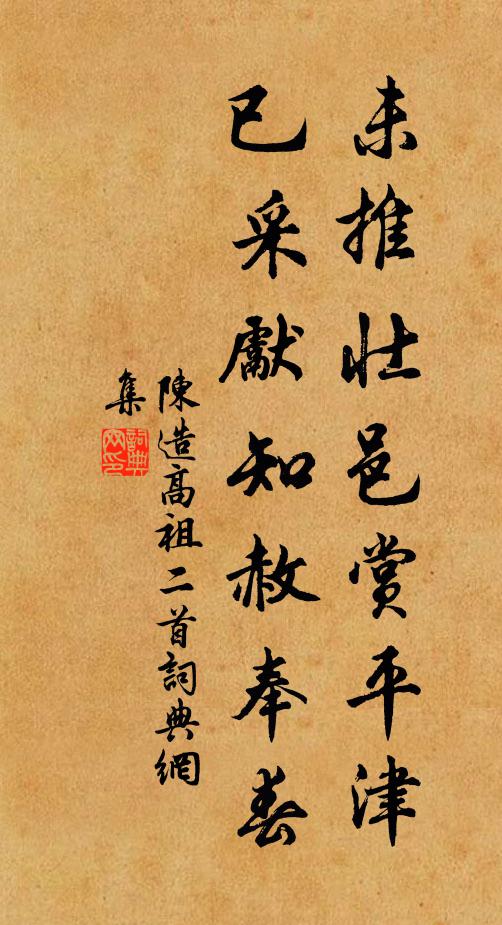 未推壮邑赏平津
已采獻知赦奉春
陳造高祖二首詞典網
集
詞典網印